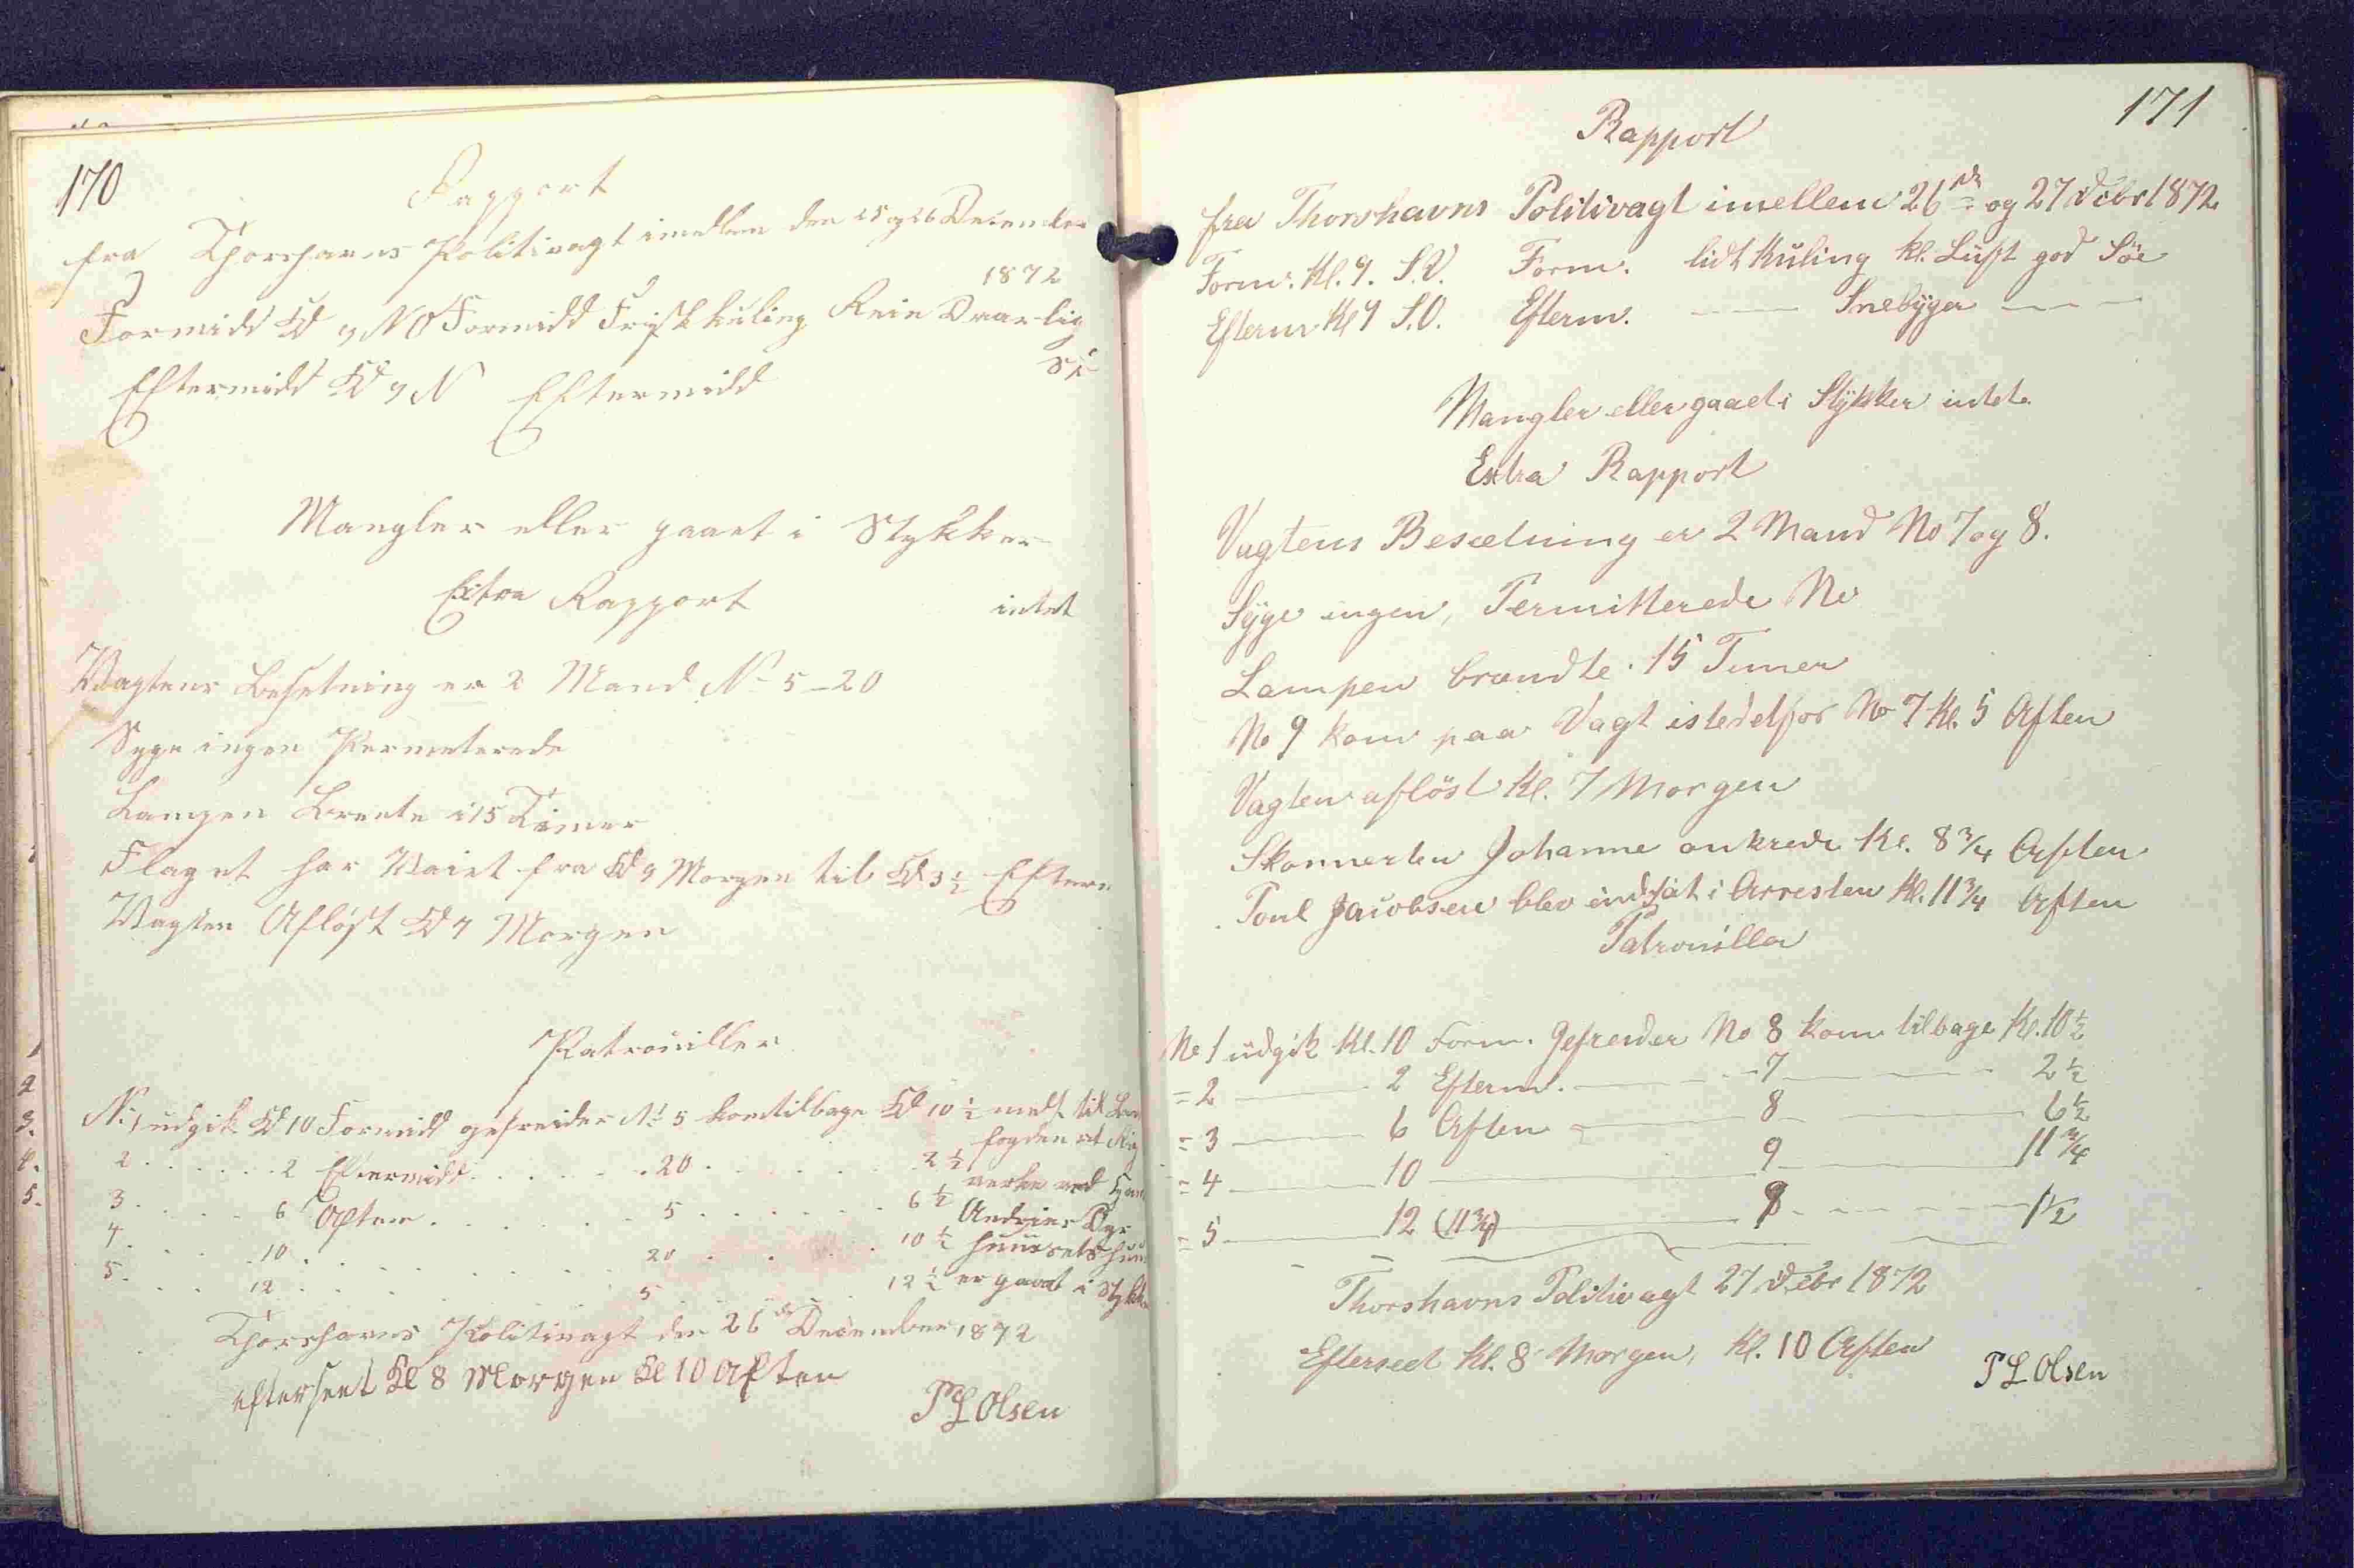 170
Rapport
fra Thorshavns Politivagt imellem den 25 og 26 December
1872
Formidd Kl 9 NO Formidd Frisk kuling Rein Daarlig
Eftermidd Kl 9 N Eftermidd
Mangler eller gaaet i Stykker
intet
Extra Rapport
Vagtens Besetning er 2 Mand No 5-20
Syge ingen Permeterede
Lampen Brente i 15 Timer
Flaget har Vaiet fra Kl 9 Morgen til Kl 3½ Efterm
Vagten Afløst Kl 7 Morgen
Patrouiller
No 1 udgik Kl 10 Formidd gefreider No 5 kom tilbage Kl 10½ til
2 . . . . . . 2 Eftermidd . . . . . . 20 . . . . . . 2½ fogden at
3 . . . . . 6 Aften . . . . . . 5 . . . . . . 6½ ved
4 . . . . . 10 . . . . . . 20 . . . . . . 10½
5 . . . 12 . . . . . . 5 . . . . . . 12½ er gaaet i Stykker
Thorshavns Politivagt den 26de December 1872
efterseet Kl 8 Morgen Kl 10 Aften
P L Olsen
171
Rapport
fra Thorshavns Politivagt imellem 26de og 27 Decbr 1872
Form. Kl. 9. S.V. Form. lidt Kuling kl. Luft god Söe
Efterm Kl 9 S.O. Efterm. —— Snebyger — —
Mangler eller gaaet i Stykker intet.
Extra Rapport
Vagtens Besætning er 2 Mand No 7 og 8.
Syge ingen, Permitterede No
Lampen brændte 15 Timer
No 9 kom paa Vagt istedetfor No 7 Kl. 5 Aften
Vagten aflöst Kl. 7 Morgen
Skonnerten Johanne ankrede Kl. 8¾ Aften
Poul Jacobsen blev indsat i Arresten Kl. 11¾ Aften
Patrouiller
No 1 udgik Kl. 10 Form. Gefreider No 8 kom tilbage Kl. 10½
= 2 —— 2 Efterm. —— 7 —— 2½
= 3 —— 6 Aften —— 8 —— 6½
= 4 —— 10 —— 9 —— 11¾
= 5 —— 12 (11¾) —— 8 —— 1½
Thorshavns Politivagt 27 Decbr 1872
Efterseet Kl. 8 Morgen, Kl. 10 Aften
P L Olsen